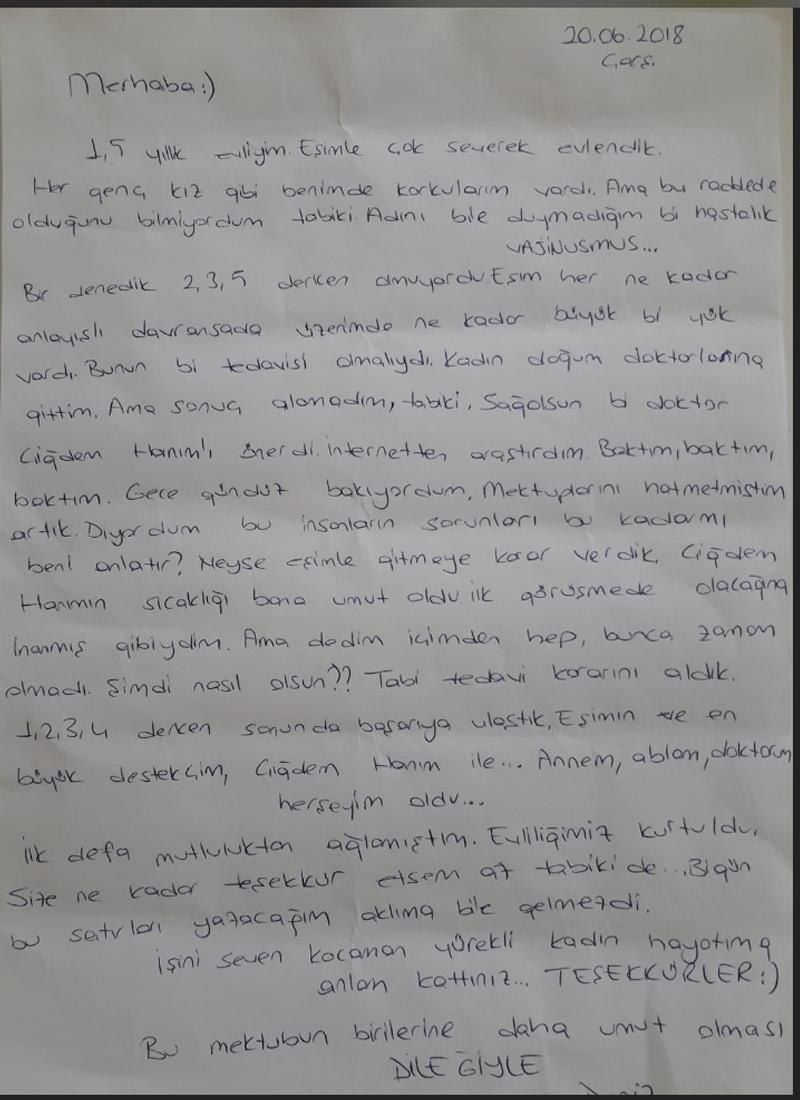 20.06.2018
Çarş.
Merhaba:)
1,5 yıllık evliyim. Eşimle çok severek evlendik.
Her genç kız gibi benimde korkularım vardı. Ama bu raddede
olduğunu bilmiyordum tabiki. Adını bile duymadığım bi hastalık
VAJİNUSMUS...
Bir denedik 2,3,5 derken olmuyordu. Eşim her ne kadar
anlayışlı davransada üzerimde ne kadar büyük bi yük
vardı. Bunun bi tedavisi olmalıydı. Kadın doğum doktorlarına
gittim. Ama sonuç alamadım, tabiki. Sağolsun bi doktor
Çiğdem Hanım'ı önerdi. internetten araştırdım. Baktım, baktım,
baktım. Gece gündüz bakıyordum. Mektuplarını hatmetmiştim
artık. Diyordum bu insanların sorunları bu kadarmı
beni anlatır? Neyse eşimle gitmeye karar verdik. Çiğdem
Hanımın sıcaklığı bana umut oldu. ilk görüşmede olacağına
inanmış gibiydim. Ama dedim içimden hep, bunca zaman
olmadı. Şimdi nasıl olsun?? Tabi tedavi kararını aldık.
1,2,3,4 derken sonunda başarıya ulaştık. Eşimin ve en
büyük destekçim, Çiğdem Hanım ile... Annem, ablam, doktorum
herşeyim oldu...
ilk defa mutluluktan ağlamıştım. Evliliğimiz kurtuldu.
Size ne kadar teşekkur etsem az tabiki de... Bigün
bu satırları yazacağım aklıma bile gelmezdi.
işini seven kocaman yürekli kadın hayatıma
anlam kattınız... TEŞEKKÜRLER:)
Bu mektubun birilerine daha umut olması
DİLEĞİYLE